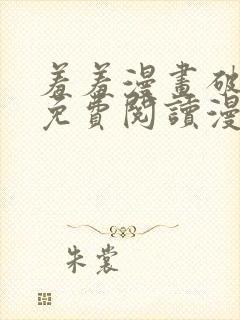 羞羞漫畫破
免費閱讀漫
朱裳